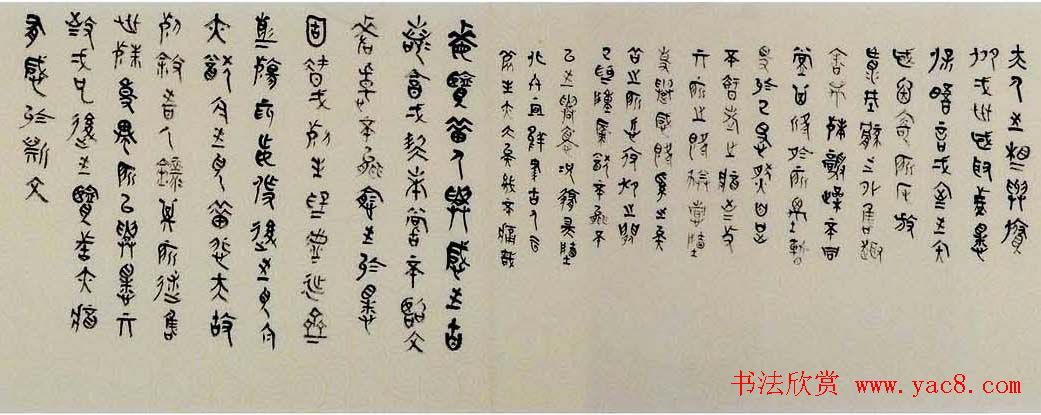 夫人之相與俯
仰一世或取諸懷
抱晤言一室之內
或因寄所託放
浪形骸之外雖趣
舍萬殊靜躁不同
當其欣於所遇暫
得於己快然自足
不知老之將至及
其所之既倦情隨
事遷感慨係之矣
向之所欣俛仰之間
已為陳跡猶不能不
以之興懷況修短隨
化終期於盡古人云
死生亦大矣豈不痛哉
每覽昔人興感之由
若合一契未嘗不臨文
嗟悼不能喻之於懷
固知一死生為虛誕齊
彭殤為妄作後之視今
亦猶今之視昔悲夫故
列敘時人錄其所述雖
世殊事異所以興懷其
致一也後之覽者亦將
有感於斯文
书法欣赏 www.yac8.com